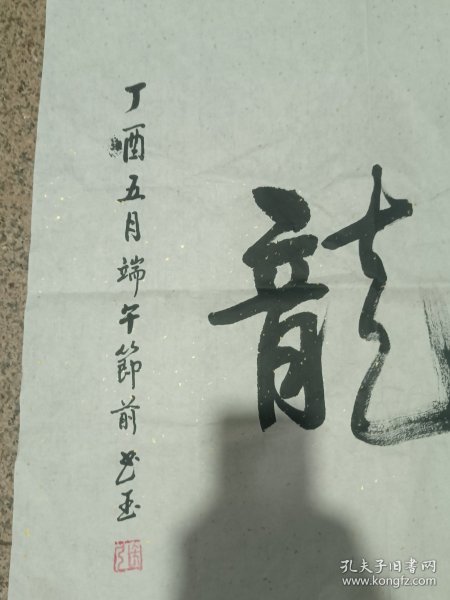 龍
丁酉五月端午節前书玉
孔夫子旧书网
www.kongfz.com